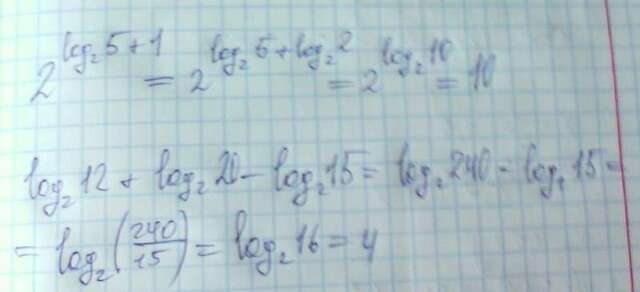 2^{log₂5+1} = 2^{log₂5+log₂2} = 2^{log₂10} = 10
log₂12 + log₂20 - log₂15 = log₂240 - log₂15 =
= log₂(240/15) = log₂16 = 4